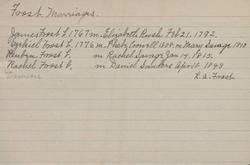 Frost Marriages.
James Frost L. 1767 m. Elizabeth Rush Feb 21. 1792.
Ezekiel Frost L. 1776 m. Phebe Crowell 1800. m Mary Savage. 1810
Reuben Frost F. m Rachel Savage Jan 14. 1813.
Rachel Frost m Daniel Apr 1. 1843
L. A. Frost